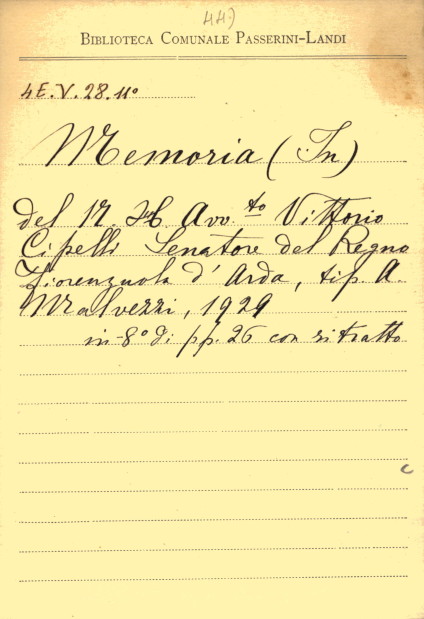 44)
BIBLIOTECA COMUNALE PASSERINI-LANDI
4E.V.28.11º
Memoria (In)
del N. H. Avv.to Vittorio
Cipelli Senatore del Regno
Fiorenzuola d'Arda, tip. A.
Malvezzi, 1929
in-8º di pp. 26 con ritratto